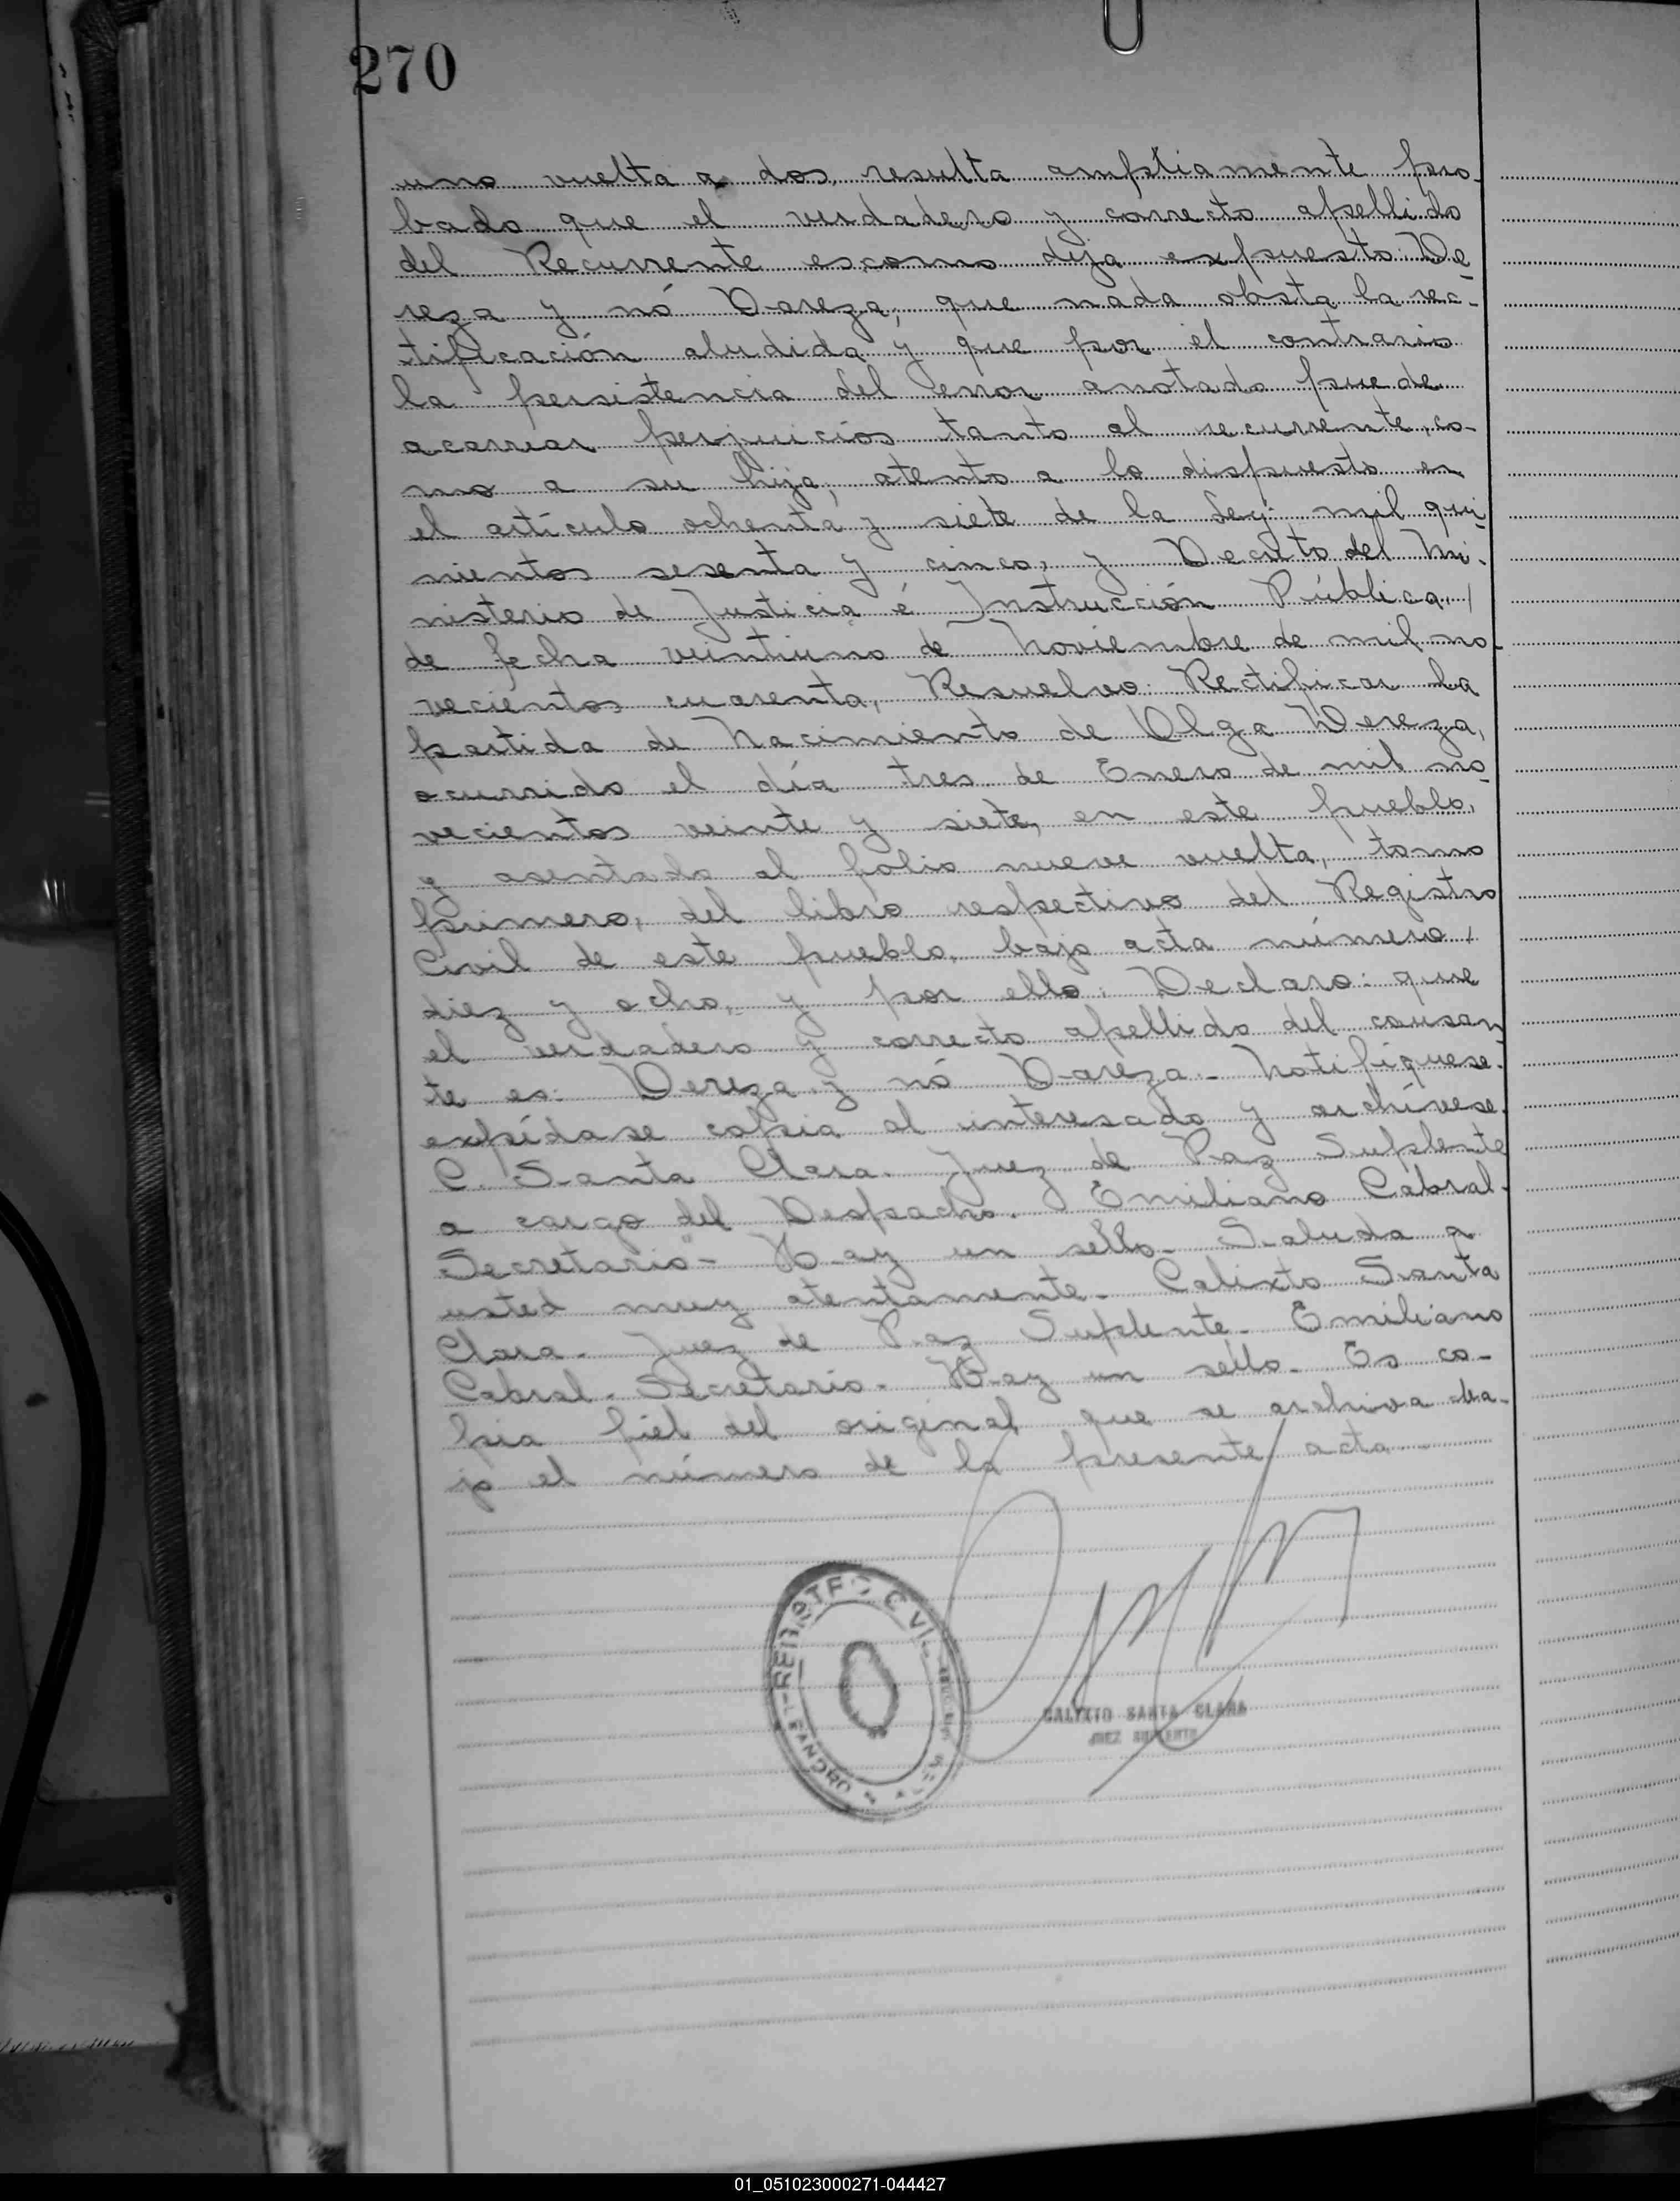 270
uno vuelta a dos, resulta ampliamente pro-
bado que el verdadero y correcto apellido
del Recurrente es como deja expuesto: De-
reza y nó Dareza, que nada obsta la rec-
tificación aludida y que por el contrario
la persistencia del error anotado puede
acarrear perjuicios tanto al recurrente, co-
mo a su hija, atento a lo dispuesto en
el artículo ochenta y siete de la Ley: mil qui-
nientos sesenta y cinco, y Decreto del Mi-
nisterio de Justicia é Instrucción Pública,/
de fecha veintiuno de Noviembre de mil no-
vecientos cuarenta, Resuelvo: Rectificar la
partida de Nacimiento de Olga Dereza,
ocurrido el día tres de Enero de mil no-
vecientos veinte y siete, en este pueblo,
y asentada al folio nueve vuelta, tomo
primero, del libro respectivo del Registro
Civil de este pueblo, bajo acta número/
diez y ocho, y por ello: Declaro: que
el verdadero y correcto apellido del causan
te es: Dereza y nó Dareza.- Notifíquese.
expídase copia al interesado y archívese.
C. Santa Clara. Juez de Paz Suplente
a cargo del Despacho. Emiliano Cabral.
Secretario"- Hay un sello- Saluda a
usted muy atentamente- Calixto Santa
Clara. Juez de Paz Suplente- Emiliano
Cabral. Secretario. Hay un sello- Es co-
pia fiel del original que se archiva ba-
jo el número de la presente acta
REGISTRO CIVIL
LEANDRO
CALIXTO SANTA CLARA
JUEZ SUPLENTE
01_051023000271-044427